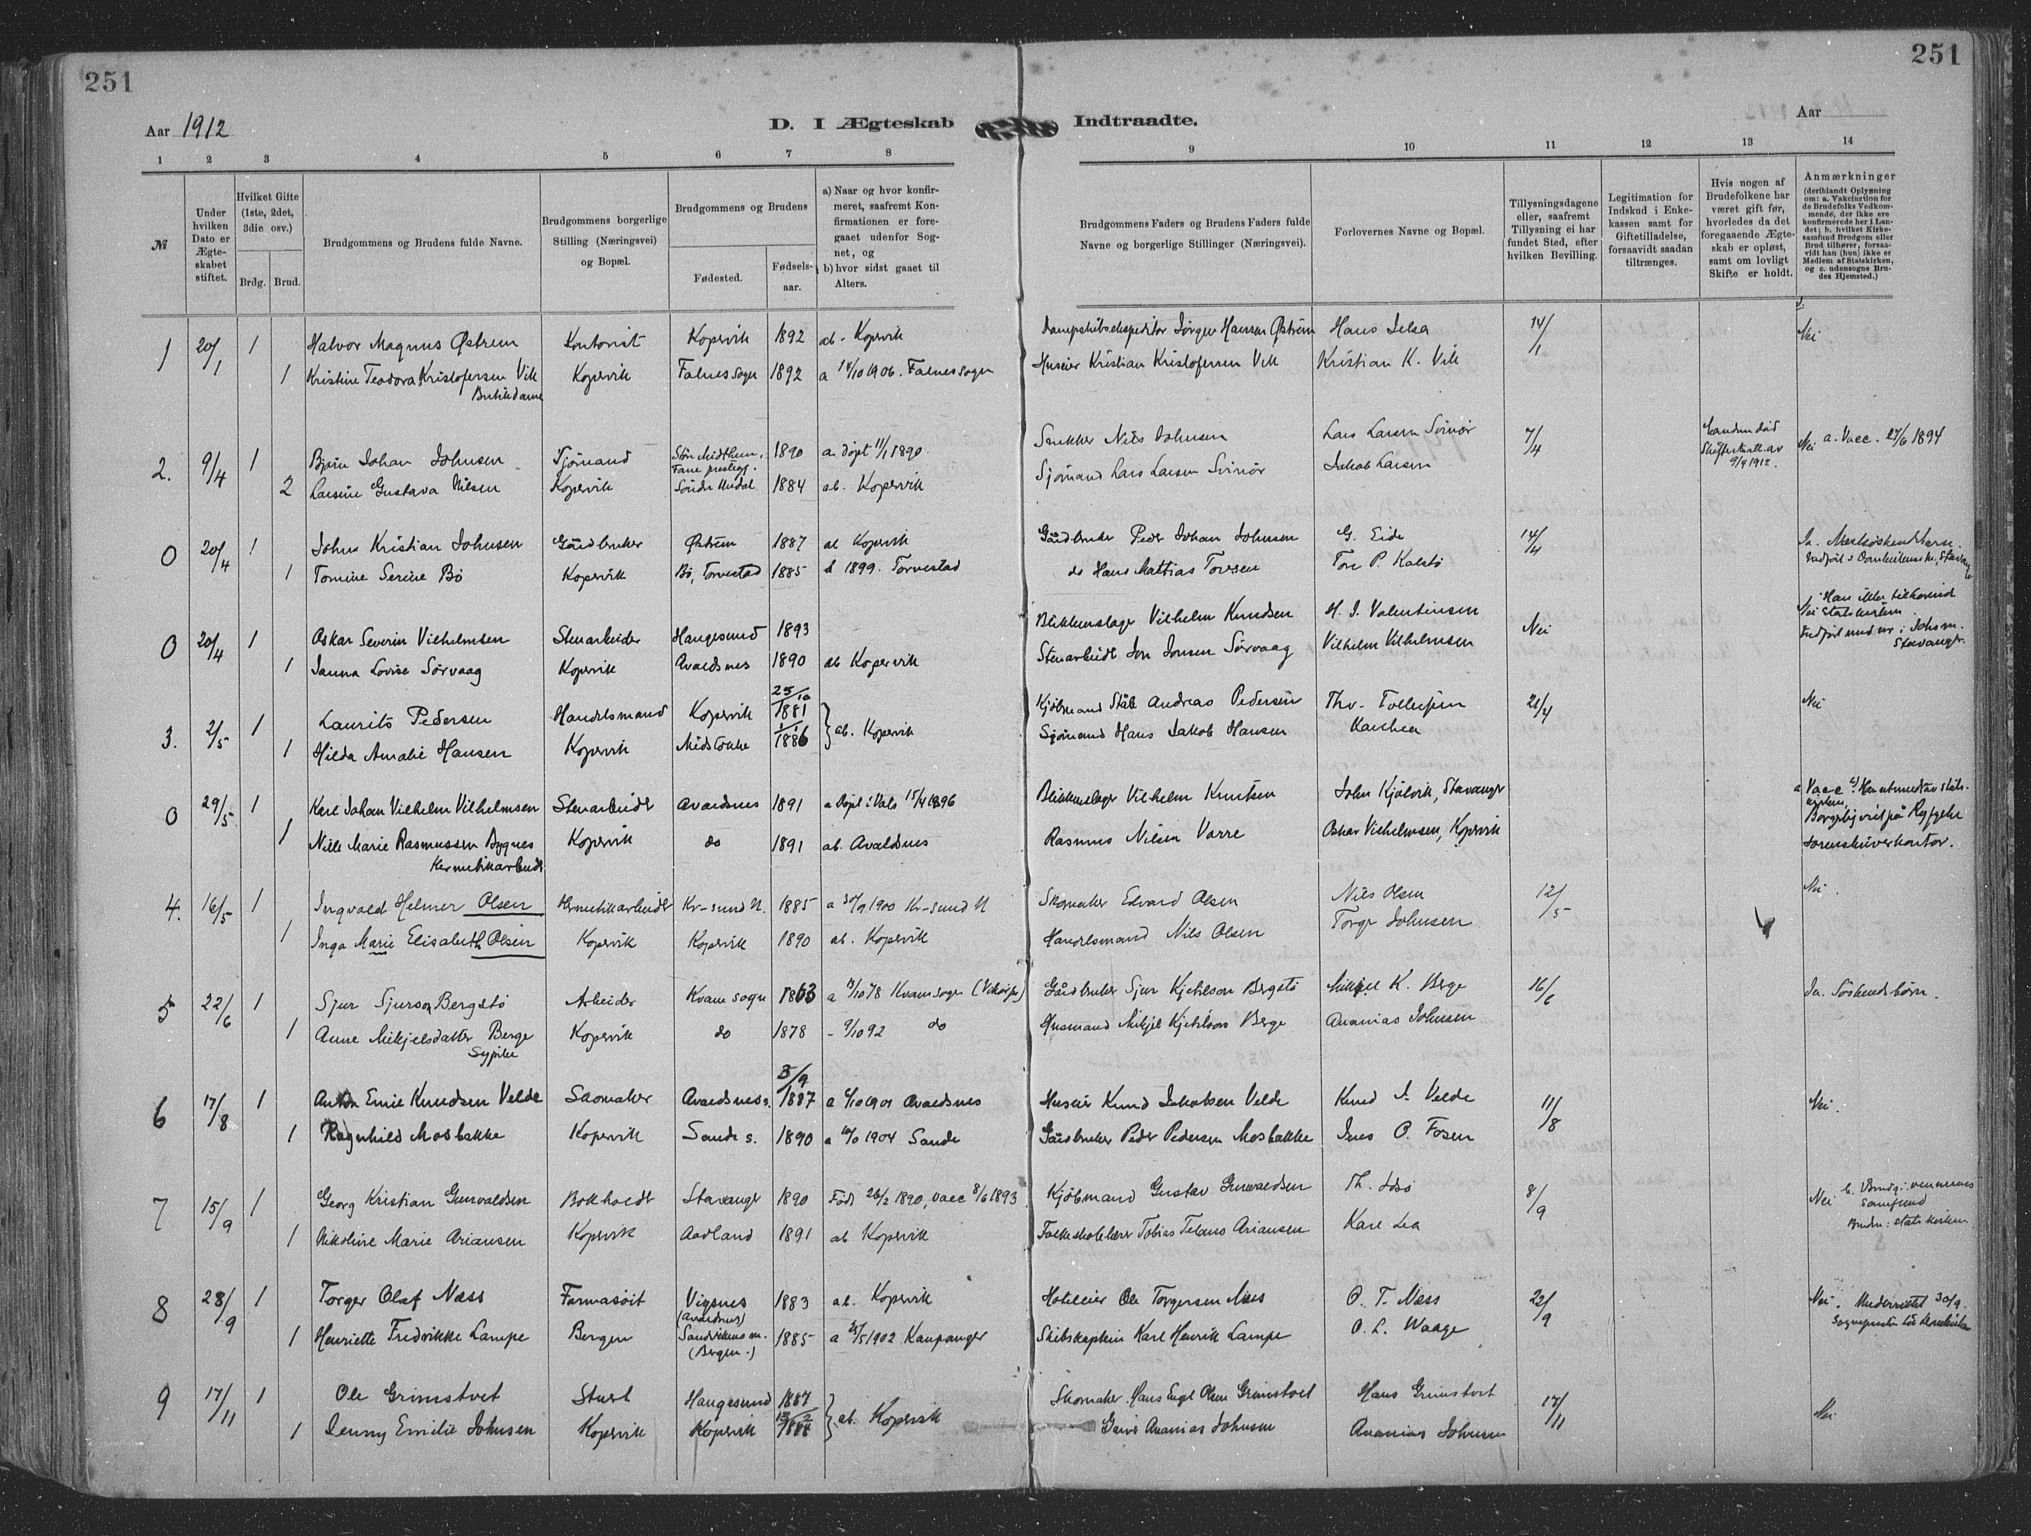 251
251
Aar 1912
D. I Ægteskab Indtraadte.
Aar
1 2 3 4 5 6 7 8 9 10 11 12 13 14
№
Under hvilken Dato er Ægteskabet stiftet.
Hvilket Gifte (1ste, 2det, 3die osv.)
Brdg. Brud.
Brudgommens og Brudens fulde Navne.
Brudgommens borgerlige Stilling (Næringsvei) og Bopæl.
Brudgommens og Brudens
Fødested. Fødselsaar.
a) Naar og hvor konfirmeret, saafremt Konfirmationen er foregaaet udenfor Sognet, og
b) hvor sidst gaaet til Alters.
Brudgommens Faders og Brudens Faders fulde Navne og borgerlige Stillinger (Næringsvei).
Forlovernes Navne og Bopæl.
Tillysningsdagene eller, saafremt Tillysning ei har fundet Sted, efter hvilken Bevilling.
Legitimation for Indskud i Enkekassen samt for Giftetilladelse, forsaavidt saadan tiltrænges.
Hvis nogen af Brudefolkene har været gift før, hvorledes da det foregaaende Ægteskab er opløst, samt om lovligt Skifte er holdt.
Anmærkninger
(deriblandt Oplysning om: a. Vakcination for de Brudefolks Vedkommende, der ikke ere konfirmerede her i Landet; b. hvilket Kirkesamfund Brudgom eller Brud tilhører, forsaavidt han (hun) ikke er Medlem af Statskirken, og c. udensogns Brudes Hjemsted.)
1 20/1 1 Halvor Magnus Østrem Kontorist Kopervik 1892 ab. Kopervik Dampskibsekspeditør Jørgen Hansen Østrem Hans Jelsa 14/1 Nei
1 Kristine Teodora Kristofersen Vik Kopervik Falnes sogn 1892 a 14/10 1906. Falnes sogn Huseier Kristian Kristofersen Vik Kristian K. Vik
Butikdame
2. 9/4 1 Bjørn Johan Johnsen 1890 a. Døpt 11/1 1890. Snekker Nils Johnsen Lars Larsen 7/4 Nei a. Vacc. 27/6 1894
9/4 1912.
2 Larsine Gustava Nilsen Kopervik 1884 ab. Kopervik Sjømand Lars Larsen Jakob Larsen
0 20/4 1 John Kristian Johnsen Gårdbruker Østrem 1887 ab Kopervik Gårdbruker Peder Johan Johnsen G. Eide 14/4
1 Tomine Serine Bø Kopervik Bø, Torvestad 1885 1899. Torvestad do Hans Mathias Tovsen Tore P. Kalstø
0 20/4 1 Oskar Severin Vilhelmsen Stenarbeider Haugesund 1893 Blikkenslager Vilhelm Knudsen H. J. Valentinsen Nei
Stavanger.
1 Janna Lovise Sørvaag Kopervik Avaldsnes 1890 ab Kopervik Stenarbeider Jon Jonsen Sørvaag Vilhelm Vilhelmsen
3. 2/5 1 Laurits Pedersen Handelsmand Kopervik 25/10 1881 ab. Kopervik Kjøbmand Ståle Andreas Pedersen Thv. Tollefsen 21/4 Nei
1 Hilda Amalie Hansen Kopervik Midstokke 1/1 1886 Sjømand Hans Jakob Hansen
0 29/5 1 Karl Johan Vilhelm Vilhelmsen Stenarbeider Avaldsnes 1891 a Døpt i Vals 15/4 1896 Blikkenslager Vilhelm Knutsen John Kjølvik, Stavanger
1 Nille Marie Rasmussen Bygnes Kopervik do 1891 ab. Avaldsnes Rasmus Nilsen Varre Oskar Vilhelmsen, Kopervik
Hermetikkarbeider
Borgerlig viet på Ryfylke
Sorenskriverkontor.
4. 16/5 1 Ingvald Helmer Olsen Hermetikkarbeider Kr-sund N. 1885 a 30/9 1900 Kr-sund N Skomaker Edvard Olsen Nils Olsen 12/5 Nei
1 Inga Marie Elisabeth Olsen Kopervik Kopervik 1890 ab. Kopervik Handelsmand Nils Olsen Torger Johnsen
5 22/6 1 Sjur Sjurson Bergstø Arbeider Kvam sogn 1863 a 13/10 78 Kvam sogn Gårdbruker Sjur Kjetilson Bergstø Mikkjel K. Berge 16/6 Ja. Søskendebørn.
1 Anne Mikjelsdatter Berge Kopervik do 1878 - 9/10 92 do Husmand Mikjel Kjetilson Berge Ananias Johnsen
Sypike
6 17/8 1 Anton Emil Knudsen Velde Skomaker Avaldsnes s. 3/9 1887 a 6/10 1901 Avaldsnes Huseier Knud Jakobsen Velde Knud J. Velde 11/8 Nei.
1 Ragnhild Mosbakke Kopervik Sande s. 1890 a 1904 Sande Gårdbruker Peder Pedersen Mosbakke Jens O. Fosen
7 15/9 1 Georg Kristian Gunvaldsen Bokholder Stavanger 1890 Født 26/2 1890, vacc 8/6 1893 Kjøbmand Gustav Gunvaldsen Th. Idsø 8/9 Nei b. Brudg: vennernes
Samfund
Bruden: statskirken
1 Nikoline Marie Ariansen Kopervik Aadland 1891 ab Kopervik Folkeskolelærer Tobias Ariansen Karl Lea
8 28/9 1 Torger Olaf Næss Farmasøit Vigsnes (Avaldsnes) 1883 ab. Kopervik Hoteleier Ole Torgersen Næs O. T. Næss 22/9 Nei. Underrettet 30/9.
1 Henriette Fredrikke Lampe Bergen Sandvikens m. (Bergen.) 1885 a 25/5 1902 Kaupanger Skibskaptein Karl Henrik Lampe O. L. Waage
9 17/11 1 Ole Grimstvet Stuert Haugesund 1887 ab. Kopervik Skomaker Hans Engel Olsen Grimstvet Hans Grimstvet 17/11 Nei
1 Jenny Emilie Johnsen Kopervik Kopervik Ananias Johnsen Ananias Johnsen